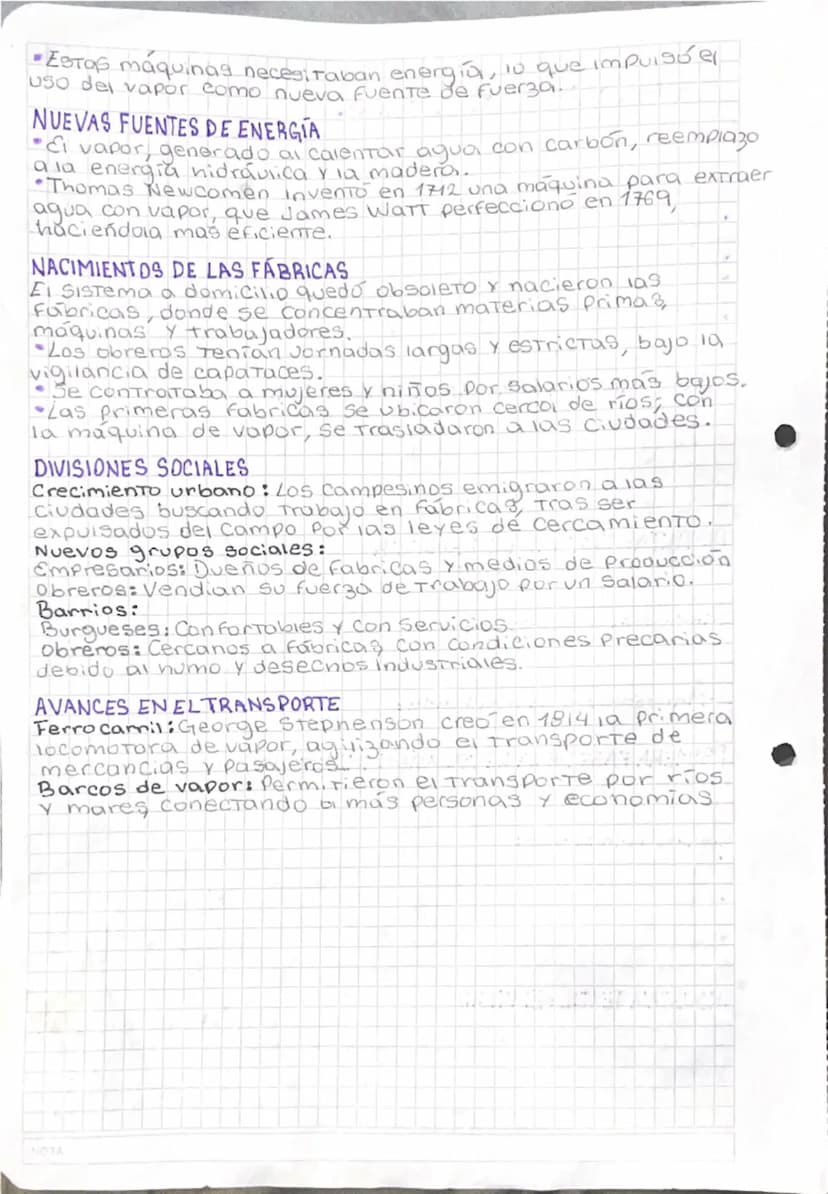 •Estas máquinas necesitaban energía, lo que impulsó el
uso del vapor como nueva fuente de fuerza.
NUEVAS FUENTES DE ENERGÍA
•El vapor, generado al calentar agua con carbón, reemplazo
a la energía hidráulica y la madera.
•Thomas Newcomen inventó en 1712 una máquina para extraer
agua con vapor, que James Watt perfeccionó en 1769,
haciéndola mas eficiente.
NACIMIENTOS DE LAS FÁBRICAS
El sistema a domicilio quedó obsoleto y nacieron las
fábricas, donde se concentraban materias primas,
máquinas y trabajadores.
•Los obreros tenían jornadas largas y estrictas, bajo la
vigilancia de capataces.
•Se contrataba a mujeres y niños por salarios más bajos.
•Las primeras fabricas se ubicaron cerca de ríos; con
la máquina de vapor, se trasladaron a las ciudades.
DIVISIONES SOCIALES
Crecimiento urbano: Los campesinos emigraron a las
ciudades buscando trabajo en fábricas, tras ser
expulsados del campo por las leyes de cercamiento.
Nuevos grupos sociales:
Empresarios: Dueños de fabricas y medios de producción
Obreros: Vendian su fuerza de trabajo por un salario.
Barrios:
Burgueses: Confortables y con servicios
Obreros: Cercanos a fábricas con condiciones precarias
debido al humo y desechos industriales.
AVANCES EN EL TRANSPORTE
Ferrocarril: George Stephenson creó en 1814 la primera
locomotora de vapor, agilizando el transporte de
mercancías y pasajeros.
Barcos de vapor: Permitieron el transporte por ríos
y mares conectando a más personas y economías
NOTA